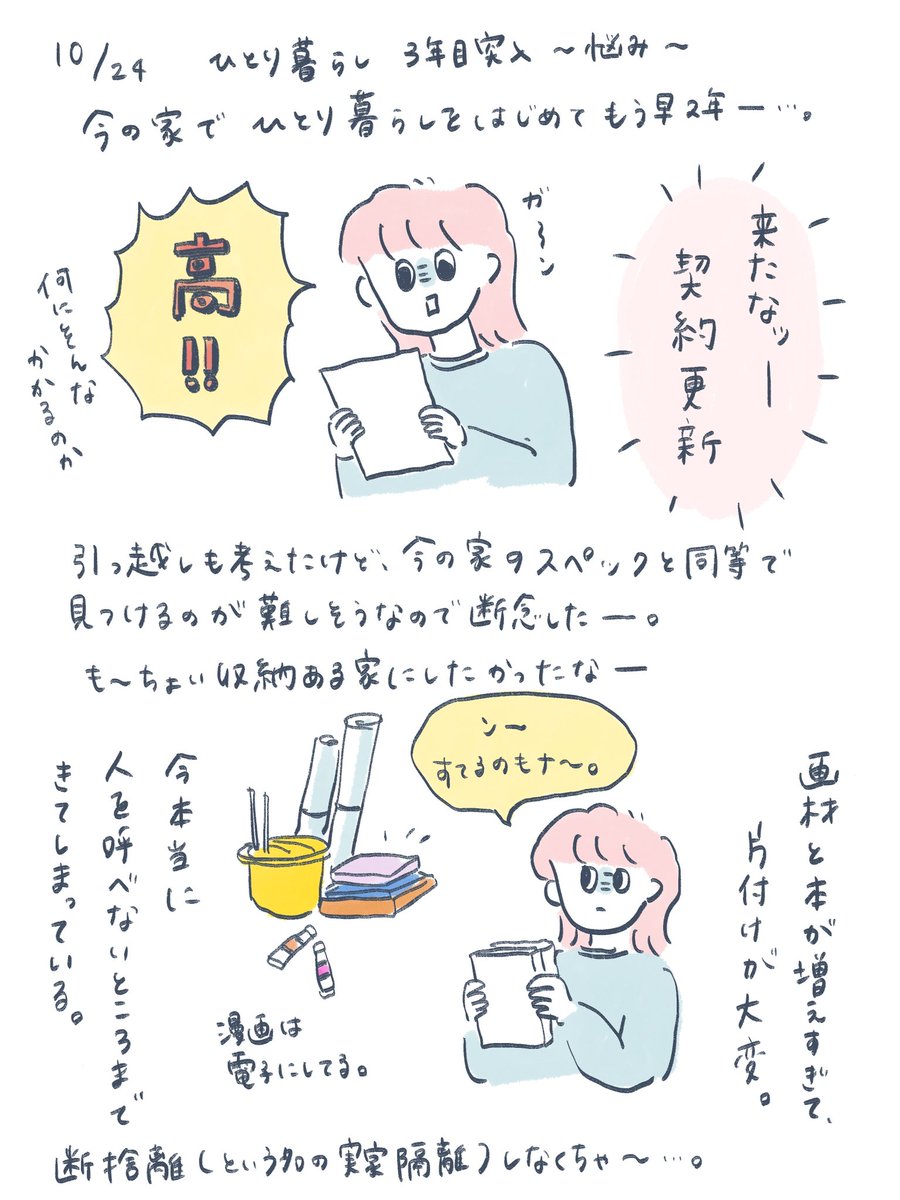 10/24 ひとり暮らし 3年目突入 〜悩み〜
今の家で ひとり暮らしをはじめて もう早2年ー…。
来たなッー
契約更新
ガーン
高!!
何にそんな
かかるのか
引っ越しも考えたけど、今の家のスペックと同等で
見つけるのが難しそうなので断念したー。
も〜ちょい収納ある家にしたかったなー
画材と本が増えすぎて、
片付けが大変。
ンー
すてるのもナ〜。
漫画は
電子にしてる。
今本当に
人を呼べないところまで
きてしまっている。
断捨離(という名の実家隔離)しなくちゃ〜…。